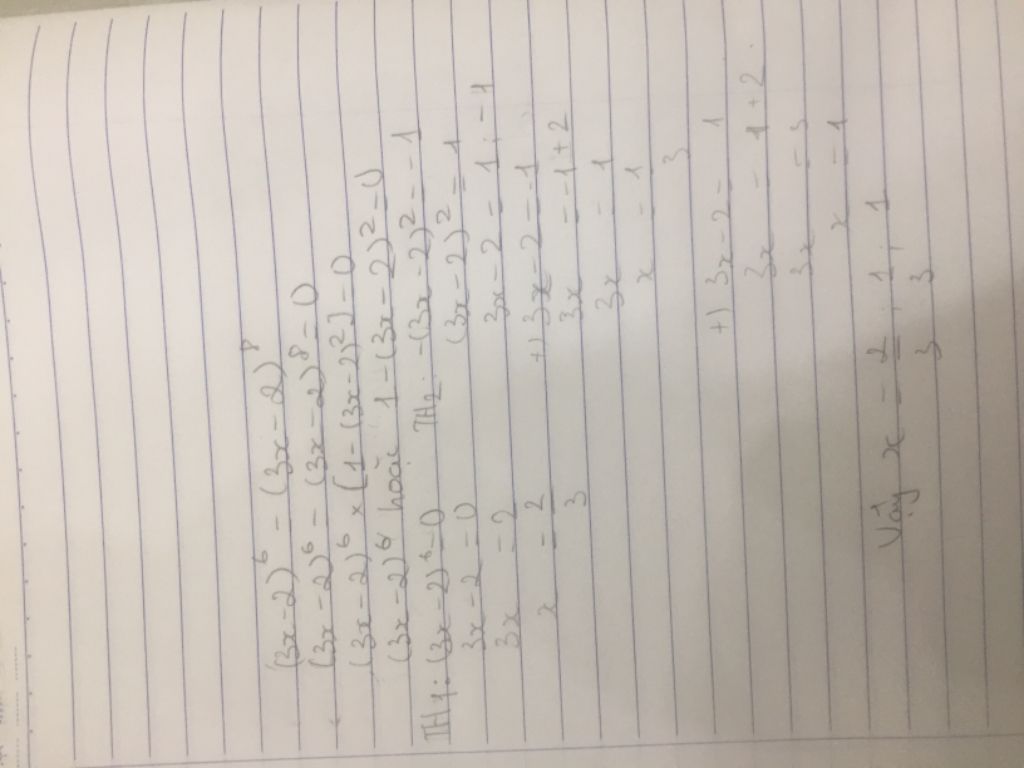 (3x-2)⁶ = (3x-2)⁸
(3x-2)⁶ - (3x-2)⁸ = 0
(3x-2)⁶ × [1-(3x-2)²] = 0
(3x-2)⁶ hoặc 1-(3x-2)² = 0
TH1: (3x-2)⁶ = 0
3x-2 = 0
3x = 2
x = 2/3
TH2: -(3x-2)² = -1
(3x-2)² = 1
3x-2 = 1; -1
+) 3x-2 = -1
3x = -1+2
3x = 1
x = 1/3
+) 3x-2 = 1
3x = 1+2
3x = 3
x = 1
Vậy x = 2/3; 1/3; 1